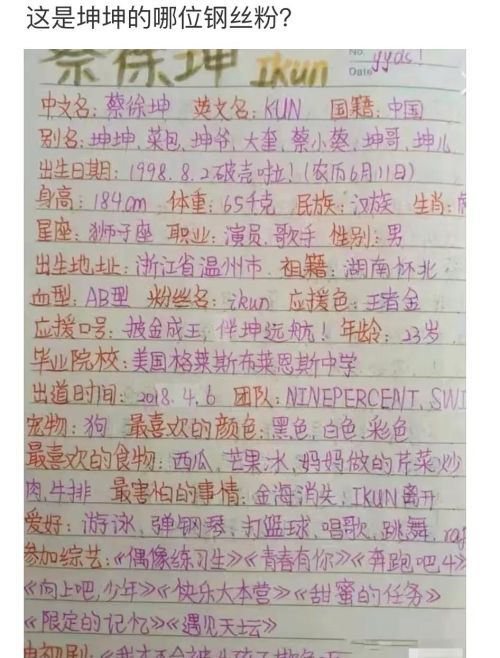 这是坤坤的哪位钢丝粉？
蔡徐坤 Ikun
No yyds!
Date
中文名：蔡徐坤 英文名：KUN 国籍：中国
别名：坤坤，菜包，坤爷，大奎，蔡小葵，坤哥，坤儿
出生日期：1998.8.2破壳啦！（农历6月11日）
身高：184cm 体重：65千克 民族：汉族 生肖：
星座：狮子座 职业：演员，歌手 性别：男
出生地址：浙江省温州市 祖籍：湖南怀北
血型：AB型 粉丝名：ikun 应援色：王者金
应援口号：披金成王，伴坤远航！ 年龄：23岁
毕业院校：美国格莱斯布莱恩斯中学
出道日时间：2018.4.6 团队：NINEPERCENT，SWI
宠物：狗 最喜欢的颜色：黑色，白色，彩色
最喜欢的食物：西瓜，芒果冰，妈妈做的芹菜炒
肉，牛排 最害怕的事情：金海消失，IKUN离开
爱好：游泳，弹钢琴，打篮球，唱歌，跳舞，rap
参加综艺：《偶像练习生》《青春有你》《奔跑吧，4》
《向上吧，少年》《快乐大本营》《甜蜜的任务》
《限定的记忆》《遇见天坛》